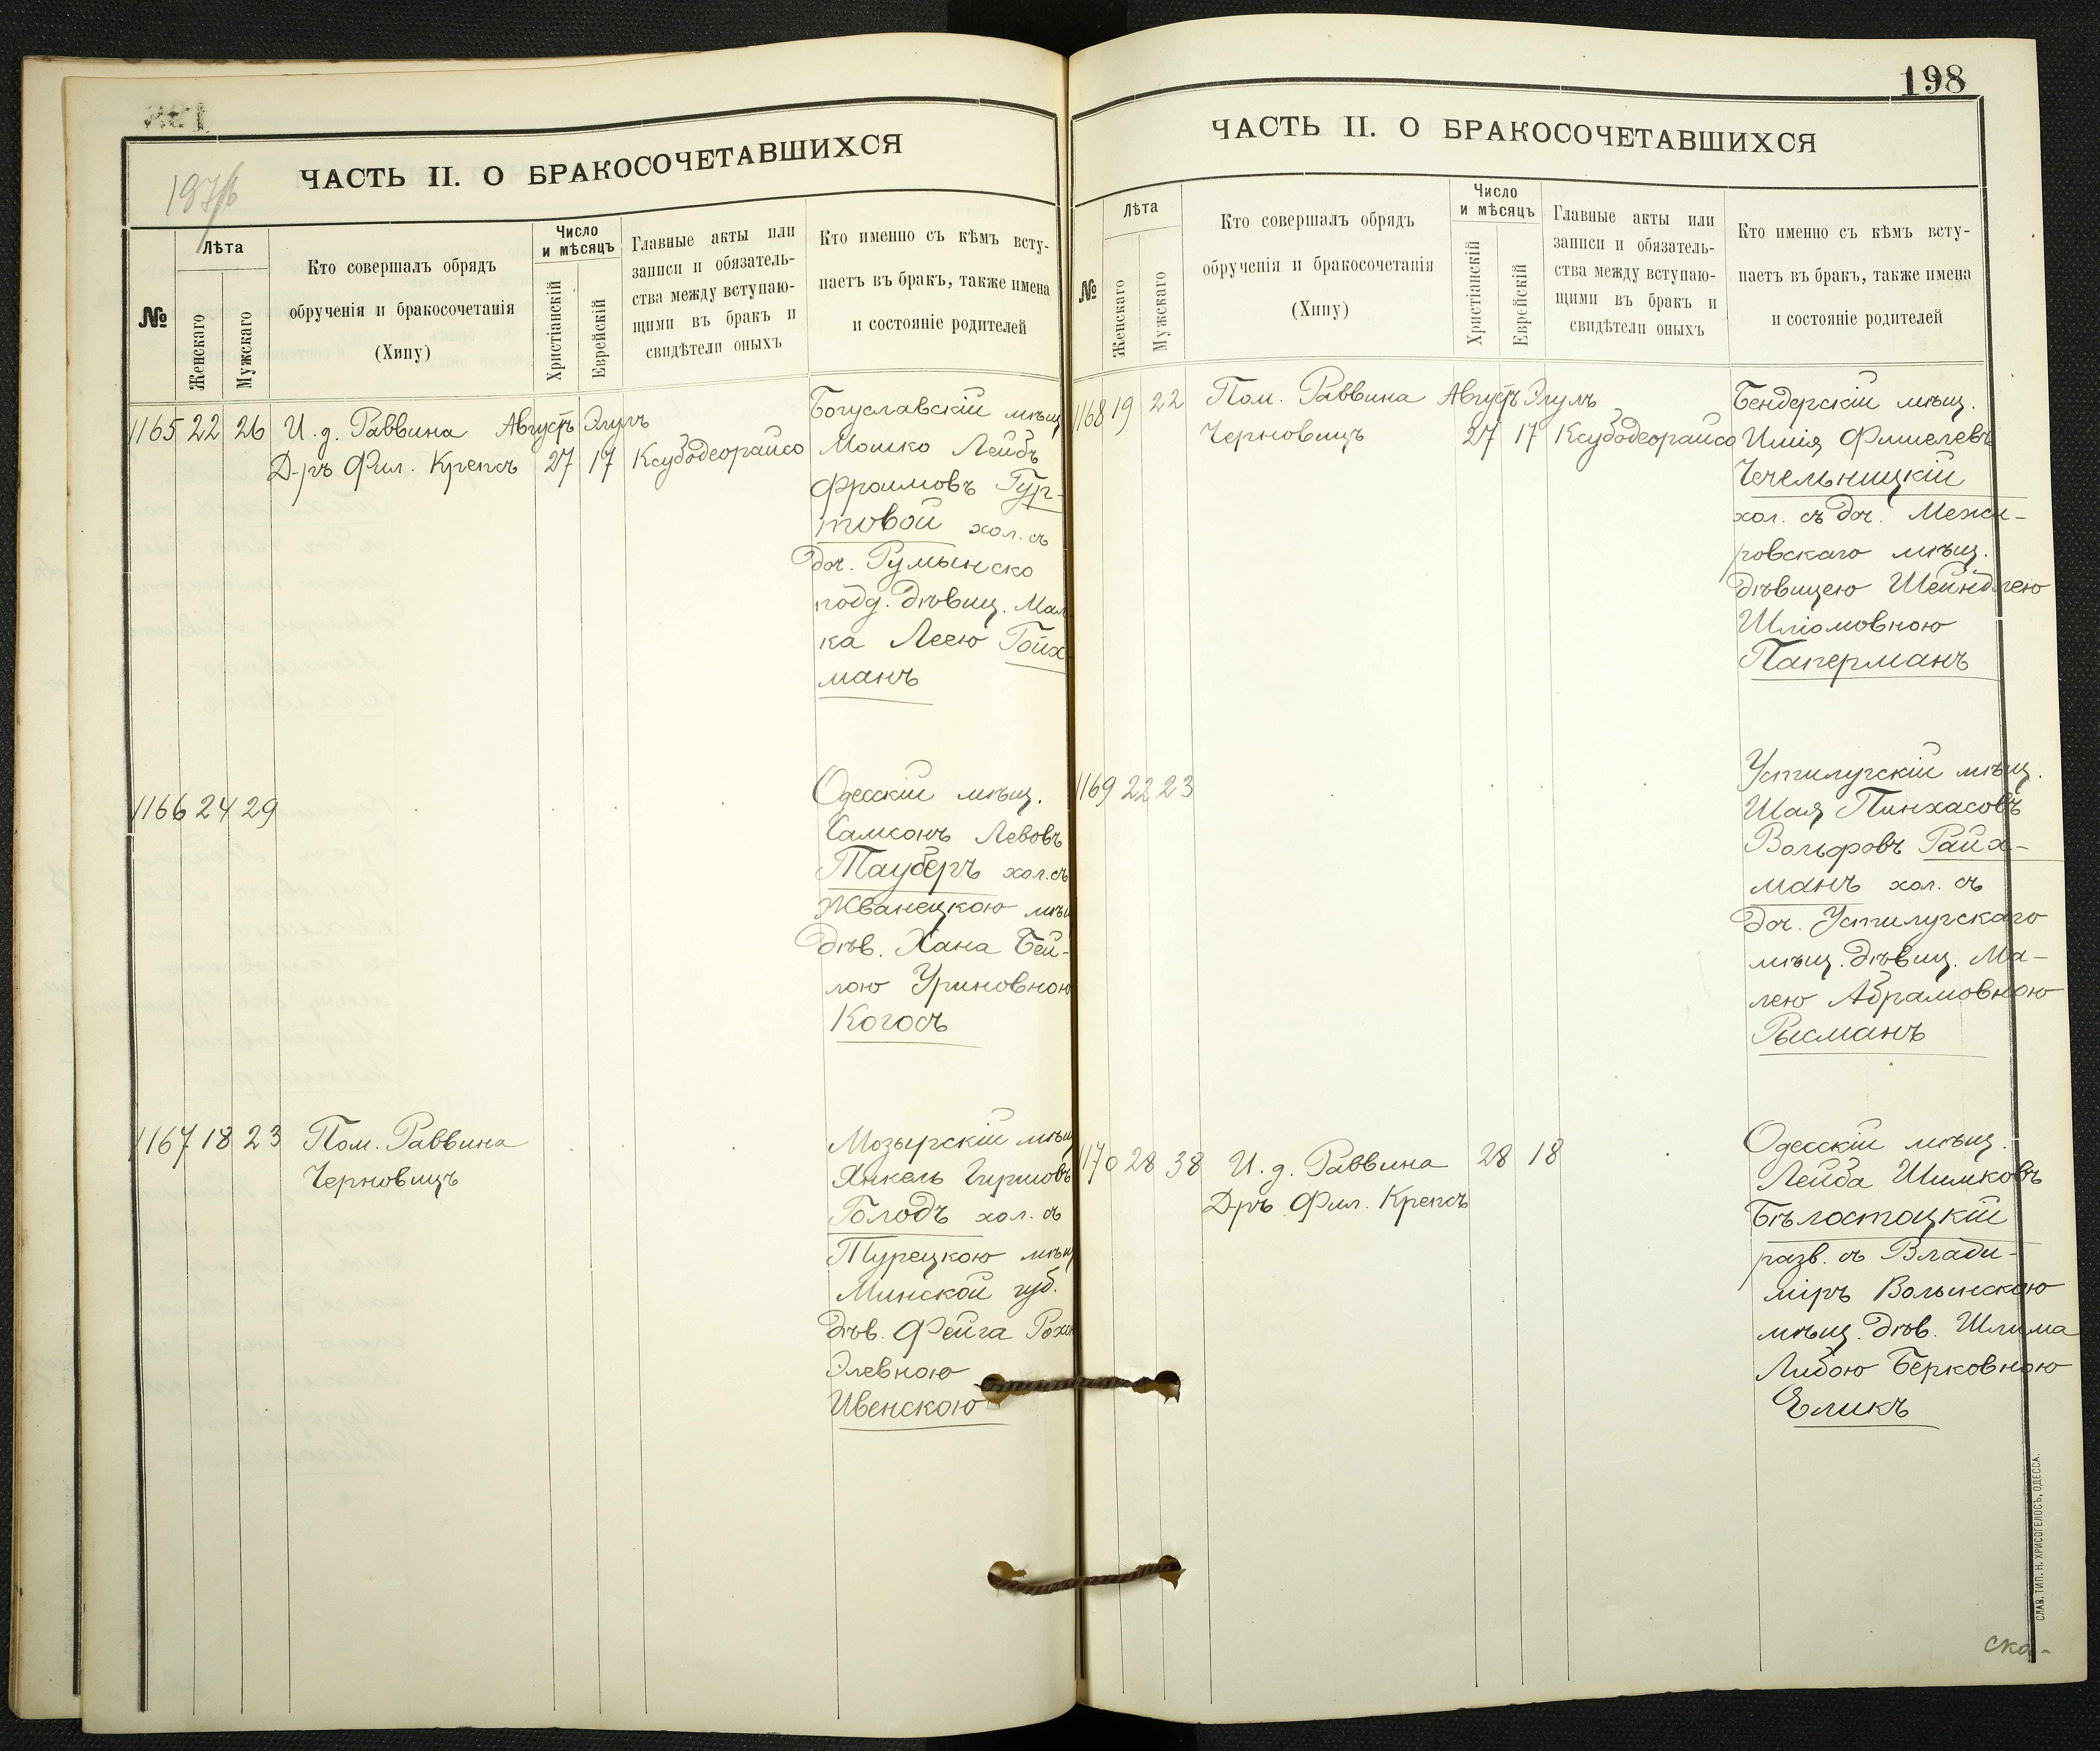 ЧАСТЬ II. О БРАКОСОЧЕТАВШИХСЯ
№
Лѣта
Женскаго
Мужскаго
Кто совершалъ обрядъ
обрученія и бракосочетанія
(Хипу)
Число
и мѣсяцъ
Христіанскій
Еврейскій
Главные акты или
записи и обязатель-
ства между вступаю-
щими въ бракъ и
свидѣтели оныхъ
Кто именно съ кѣмъ всту-
паетъ въ бракъ, также имена
и состояніе родителей
1165 22 26 И. д. Раввина Августъ Элулъ
Д-ръ Фил. Крепсъ 27 17 Ксубодеорайсо
Богуславскій мѣщ.
Мошко Лейбъ
Фроимовъ Гур-
товой хол. съ
доч. Румынско
подд. дѣвиц. Мал
ка Леею Гойх-
манъ
1166 24 29
Одесскій мѣщ.
Самсонъ Левовъ
Тауберъ хол. съ
Жванецкою мѣщ
дѣв. Хана Бей-
лою Уриновною
Когосъ
1167 18 23 Пом. Раввина
Черновицъ
Мозырскій мѣщ
Янкель Гиршовъ
Голодъ хол. съ
Турецкою мѣщ
Минской губ.
дѣв. Фейга
Элевною
Ивенскою
198
ЧАСТЬ II. О БРАКОСОЧЕТАВШИХСЯ
№
Лѣта
Женскаго
Мужскаго
Кто совершалъ обрядъ
обрученія и бракосочетанія
(Хипу)
Число
и мѣсяцъ
Христіанскій
Еврейскій
Главные акты или
записи и обязатель-
ства между вступаю-
щими въ бракъ и
свидѣтели оныхъ
Кто именно съ кѣмъ всту-
паетъ въ бракъ, также имена
и состояніе родителей
1168 19 22 Пом. Раввина Августъ Элулъ
Черновицъ 27 17 Ксубодеорайсо
Бендерскій мѣщ.
Фишелевъ
Чечельницкій
хол. съ доч. Межи-
ровскаго мѣщ.
дѣвицею Шейндлею
Шліомовною
Паперманъ
1169 22 23
Устилугскій мѣщ.
Шая Пинхасовъ
Вольфовъ Райх-
манъ хол. съ
доч. Устилугскаго
мѣщ. дѣвиц. Ма-
лею Абрамовною
Рысманъ
1170 28 38 И. д. Раввина 28 18
Д-ръ Фил. Крепсъ
Одесскій мѣщ.
Лейба Шимковъ
Бѣлостоцкій
разв. съ Влади-
міръ Волынскою
мѣщ. дѣв. Шлима
Либою Берковною
Эликъ
СЛАВ. ТИП. Н. ХРИСОГЕЛОСЪ, ОДЕССА.
ска-